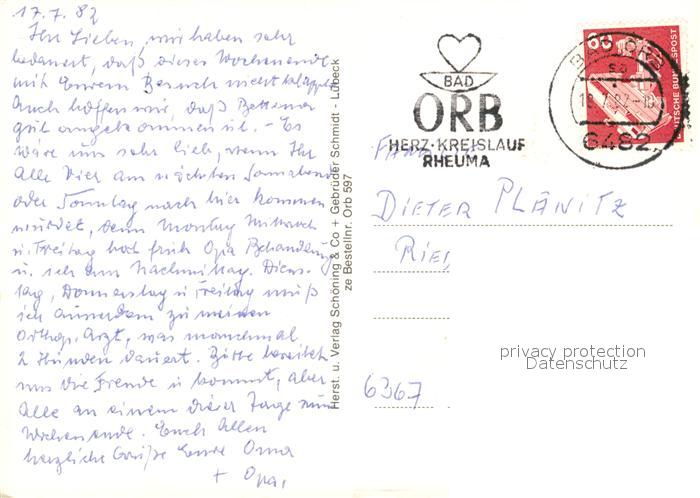 17.7.82
Ihr Lieben, wir haben sehr
bedauert, daß dieses Wochenende
mit Eurem Besuch nicht klappt
Auch hoffen wir, daß Bettina
gut angekommen ist. - Es
wäre uns sehr lieb, wenn Ihr
Alle Vier am nächsten Sonnabend
oder Sonntag nach hier kommen
würdet, denn Montag Mittwoch
u. Freitag hat früh Opa Behandlung
u. ich am Nachmittag. Diens-
tag, Donnerstag u Freitag muß
ich ausserdem zu meinem
Orthop. Arzt, was manchmal
2 Stunden dauert. Bitte bereitet
uns die Freude u kommt, aber
Alle an einem dieser Tage zum
Wochenende. Euch Allen
herzliche Grüße Eure Oma
+ Opa.
Herst. u. Verlag Schöning & Co + Gebrüder Schmidt - Lübeck
ze Bestellnr. Orb 597
BAD
ORB
HERZ·KREISLAUF
RHEUMA
BAD ORB
6482
60
DEUTSCHE BUNDESPOST
DIETER PLÄNITZ
6367
privacy protection
Datenschutz